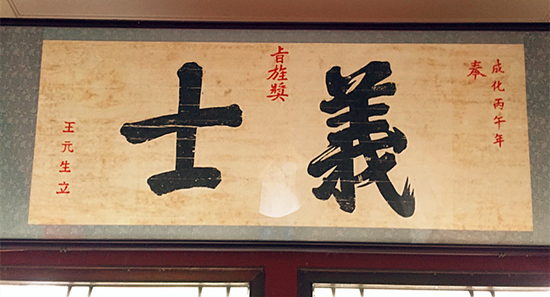 成化丙午年
奉
旨旌獎
義士
王元生立